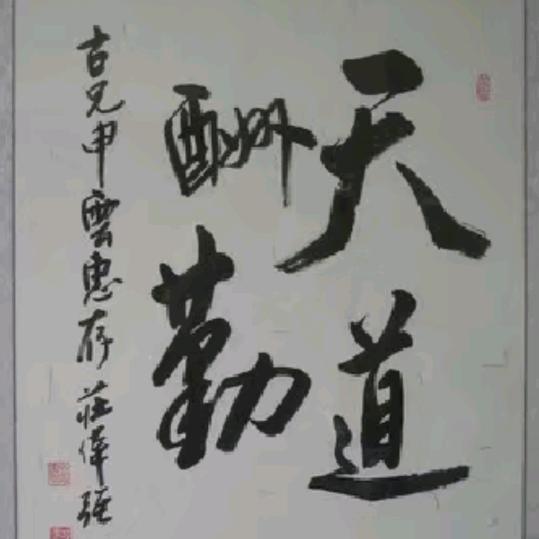 天道
酬勤
古兄申雲惠存 莊偉強